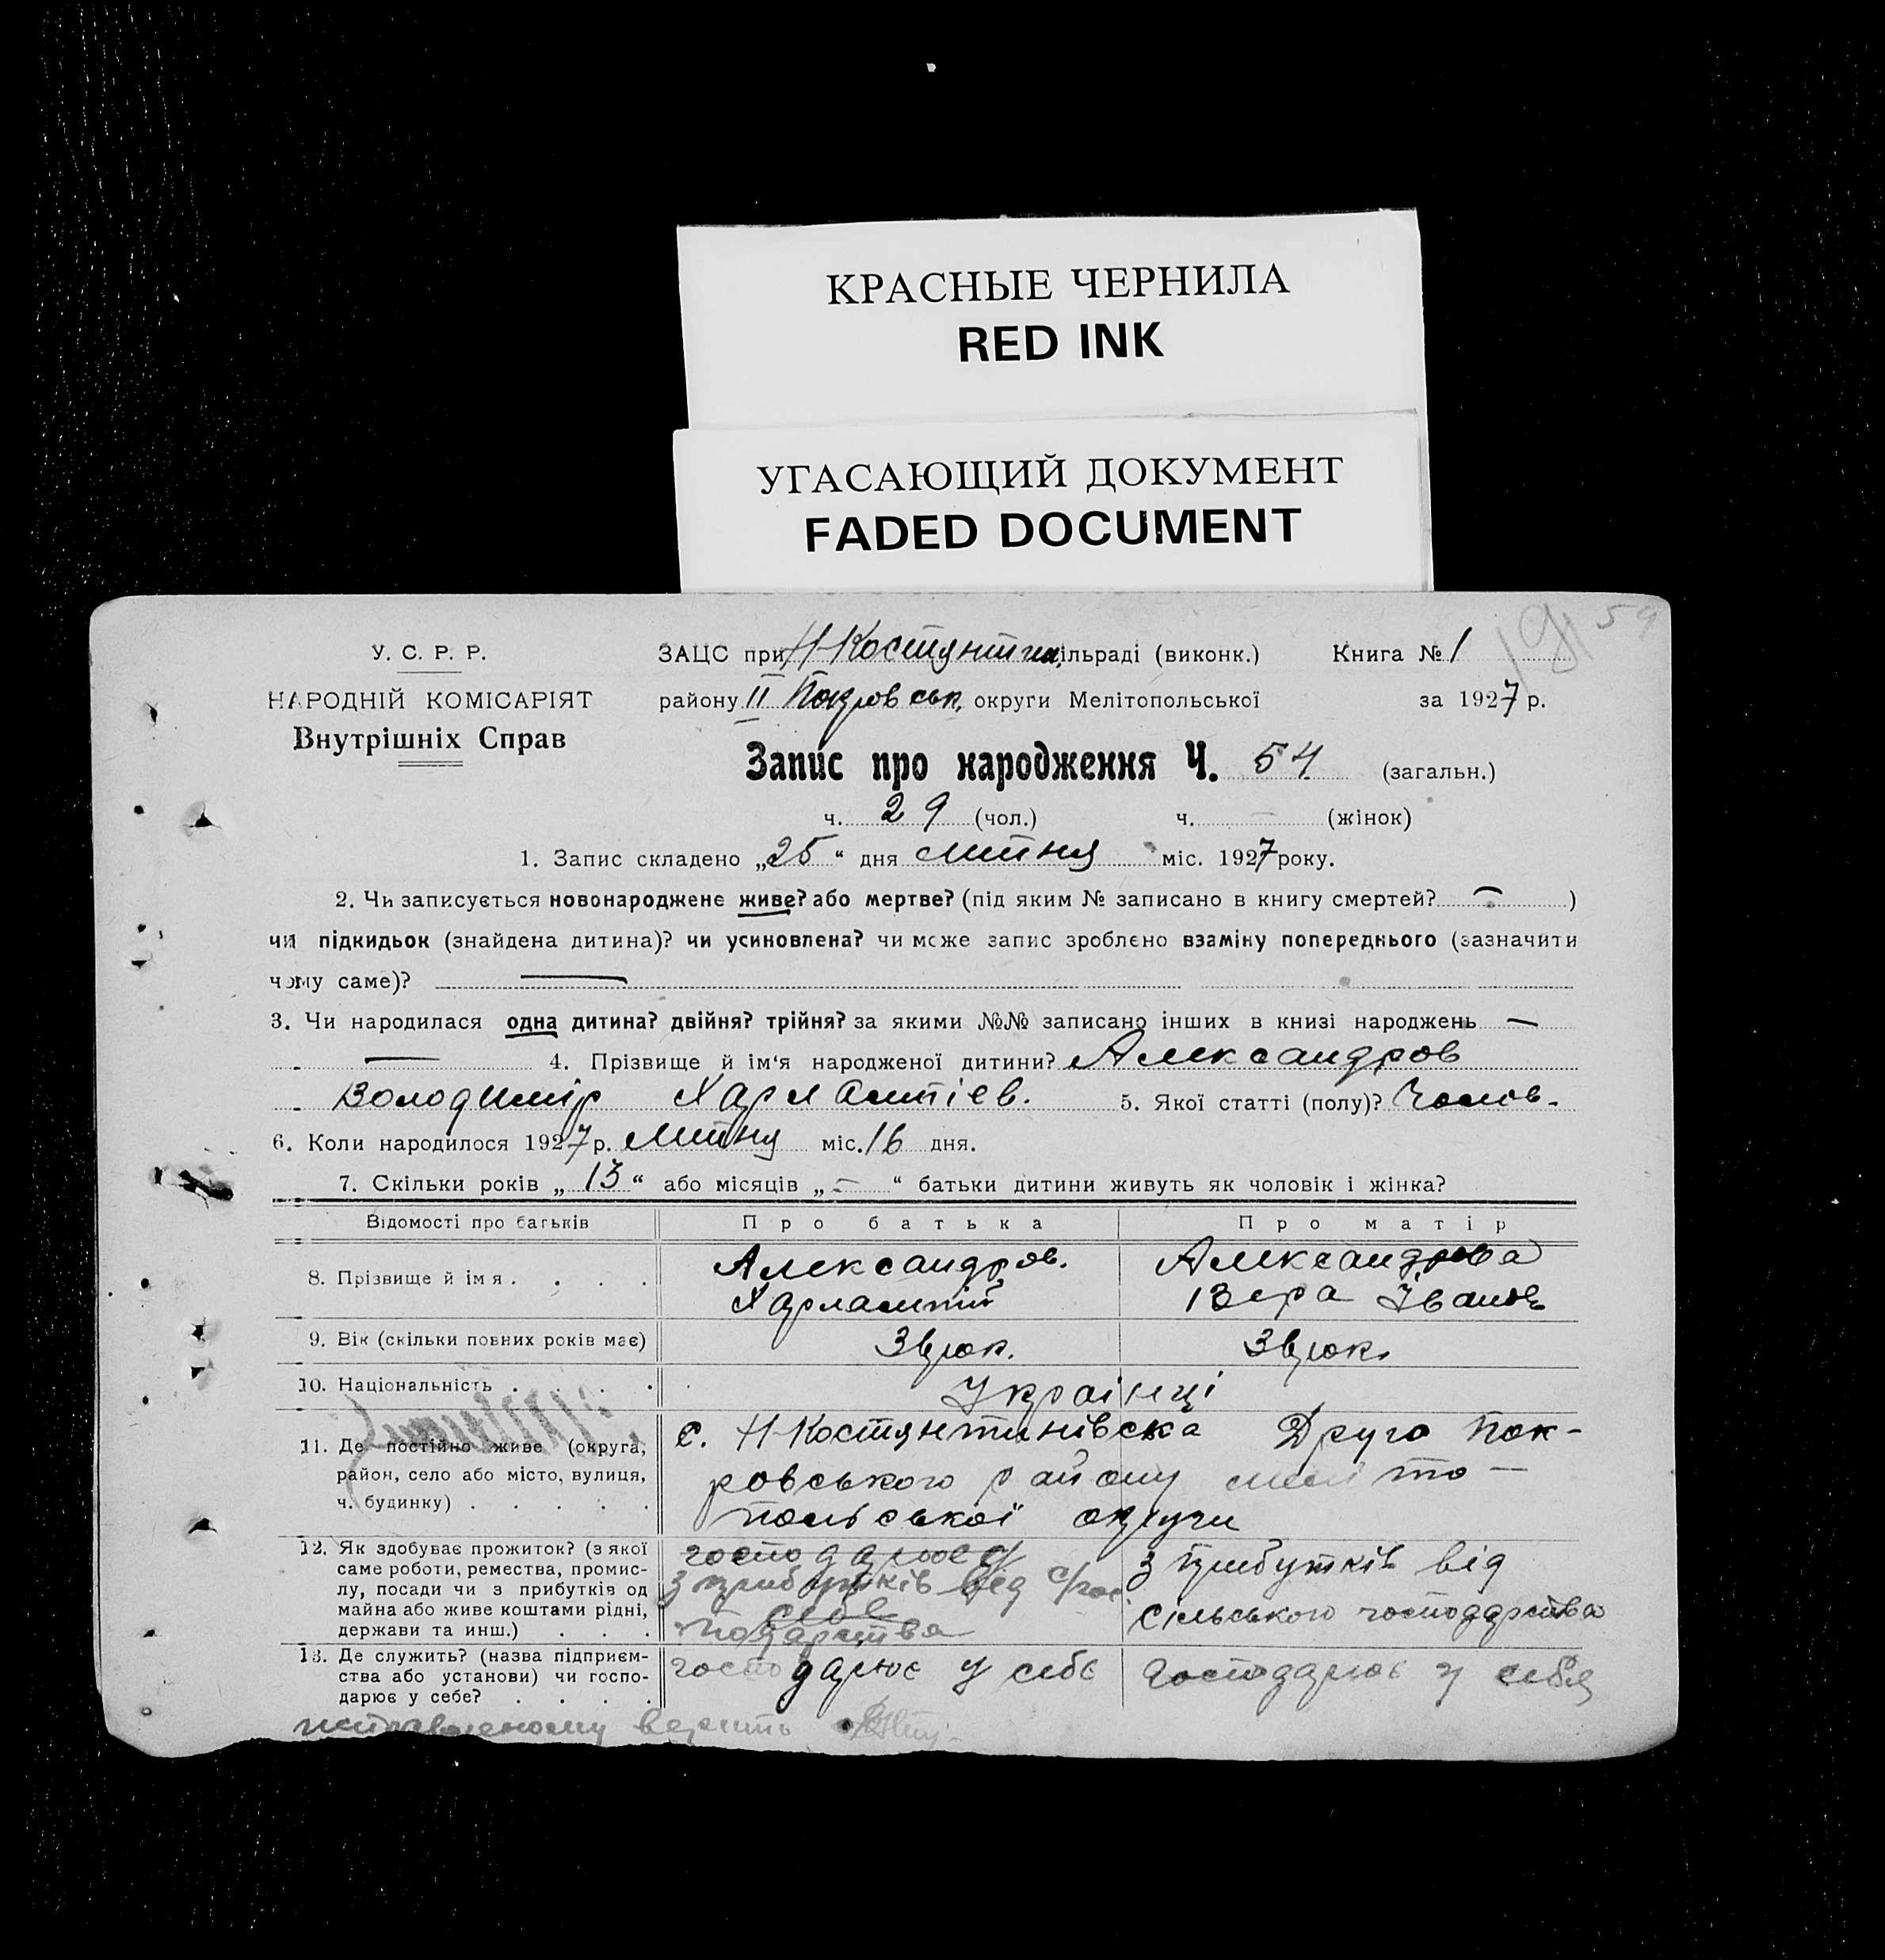 КРАСНЫЕ ЧЕРНИЛА
RED INK
УГАСАЮЩИЙ ДОКУМЕНТ
FADED DOCUMENT
59
У. С. Р. Р.
НАРОДНІЙ КОМІСАРІЯТ
Внутрішніх Справ
ЗАЦС при Н-Костянтин. сільраді (виконк.) Книга № 1
району ІІ Покровськ. округи Мелітопольської за 1927 р.
Запис про народження Ч. 54 (загальн.)
ч. 29 (чол.) ч. — (жінок)
1. Запис складено „25“ дня липня міс. 1927 року.
2. Чи записується новонароджене живе? або мертве? (під яким № записано в книгу смертей? — )
чи підкидьок (знайдена дитина)? чи усиновлена? чи може запис зроблено взаміну попереднього (зазначити
чому саме)? —
3. Чи народилася одна дитина? двійня? трійня? за якими №№ записано інших в книзі народжень —
— 4. Прізвище й ім‘я народженої дитини? Александров
Володимір Харлампієв. 5. Якої статті (полу)? Чолов-
6. Коли народилося 1927 р. Липня міс. 16 дня.
7. Скільки років „13“ або місяців „—“ батьки дитини живуть як чоловік і жінка?
Відомості про батьків Про батька Про матір
8. Прізвище й імя . . . . Александров. Александрова
Харлампій Вера Іванов
9. Вік (скільки повних років має) 32 рок. 32 рок.
10. Національність . . . . Украінці
11. Де постійно живе (округа, район, село або місто, вулиця, ч. будинку) . . . . .
с. Н-Костянтинівска Друго Пок-
ровського району меліто-
польської округи
12. Як здобуває прожиток? (з якої саме роботи, ремества, промислу, посади чи з прибутків од майна або живе коштами рідні, держави та инш.) . . .
господарює у
з прибутків від с/гос
себе
подарства
з прибутків від
сільського господарства
13. Де служить? (назва підприємства або установи) чи господарює у себе? . . . .
господарює у себе господарює у себя
исправленому верить